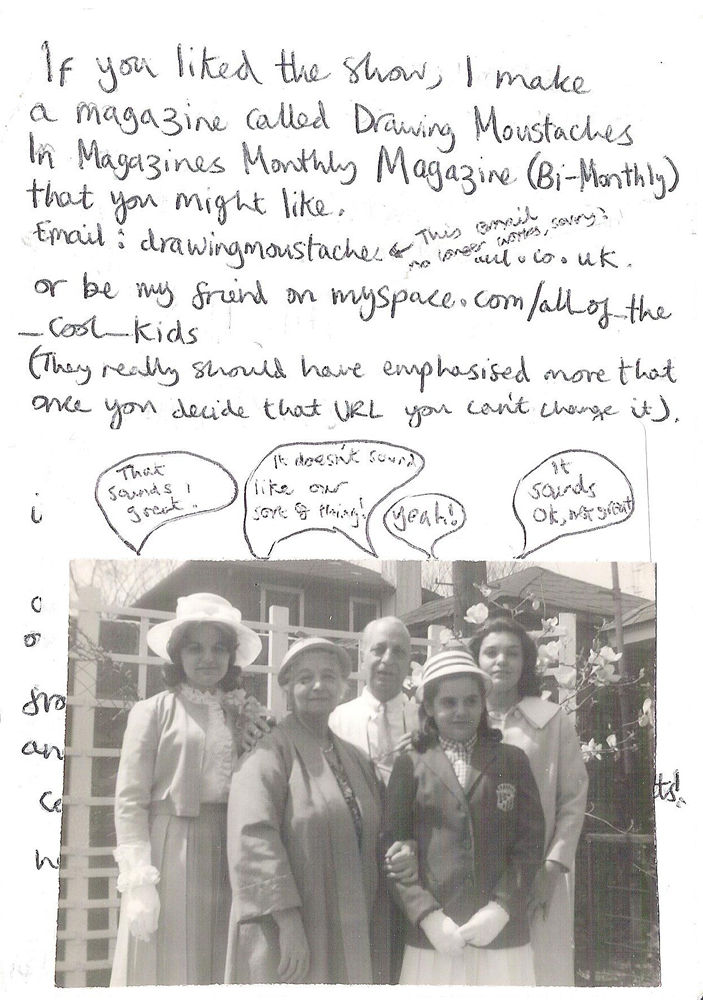 If you liked the show, I make
a magazine called Drawing Moustaches
In Magazines Monthly Magazine (Bi-Monthly)
that you might like.
Email : drawingmoustaches
← This email
no longer works, sorry!
.co.uk.
or be my friend on myspace.com/all_of_the
_cool_kids
(They really should have emphasised more that
once you decide that URL you can't change it).
That
sounds
great!
It doesn't sound
like our
sort of thing!
yeah!
It
sounds
OK, not great
i
o
o
fro
an
ce
ts!
h